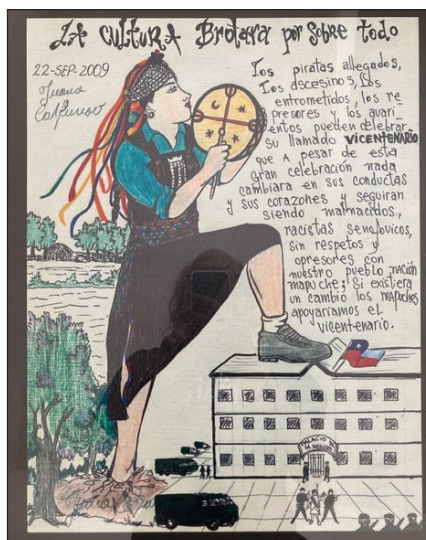 LA CULTURA Brotara por sobre todo
22-SEP-2009
Juana
Los piratas allegados,
Los ascesinos, los
entrometidos, los re-
presores y los avari-
entos pueden celebrar
su llamado VICENTENARIO
que a pesar de esta
gran celebración nada
cambiara en sus conductas
y sus corazones y seguiran
siendo malnacidos,
racistas senofovicos,
sin respetos y
opresores con
nuestro pueblo nación
mapuche; Si existiera
un cambió los mapuches
apoyariamos el
vicentenario.
PALACIO